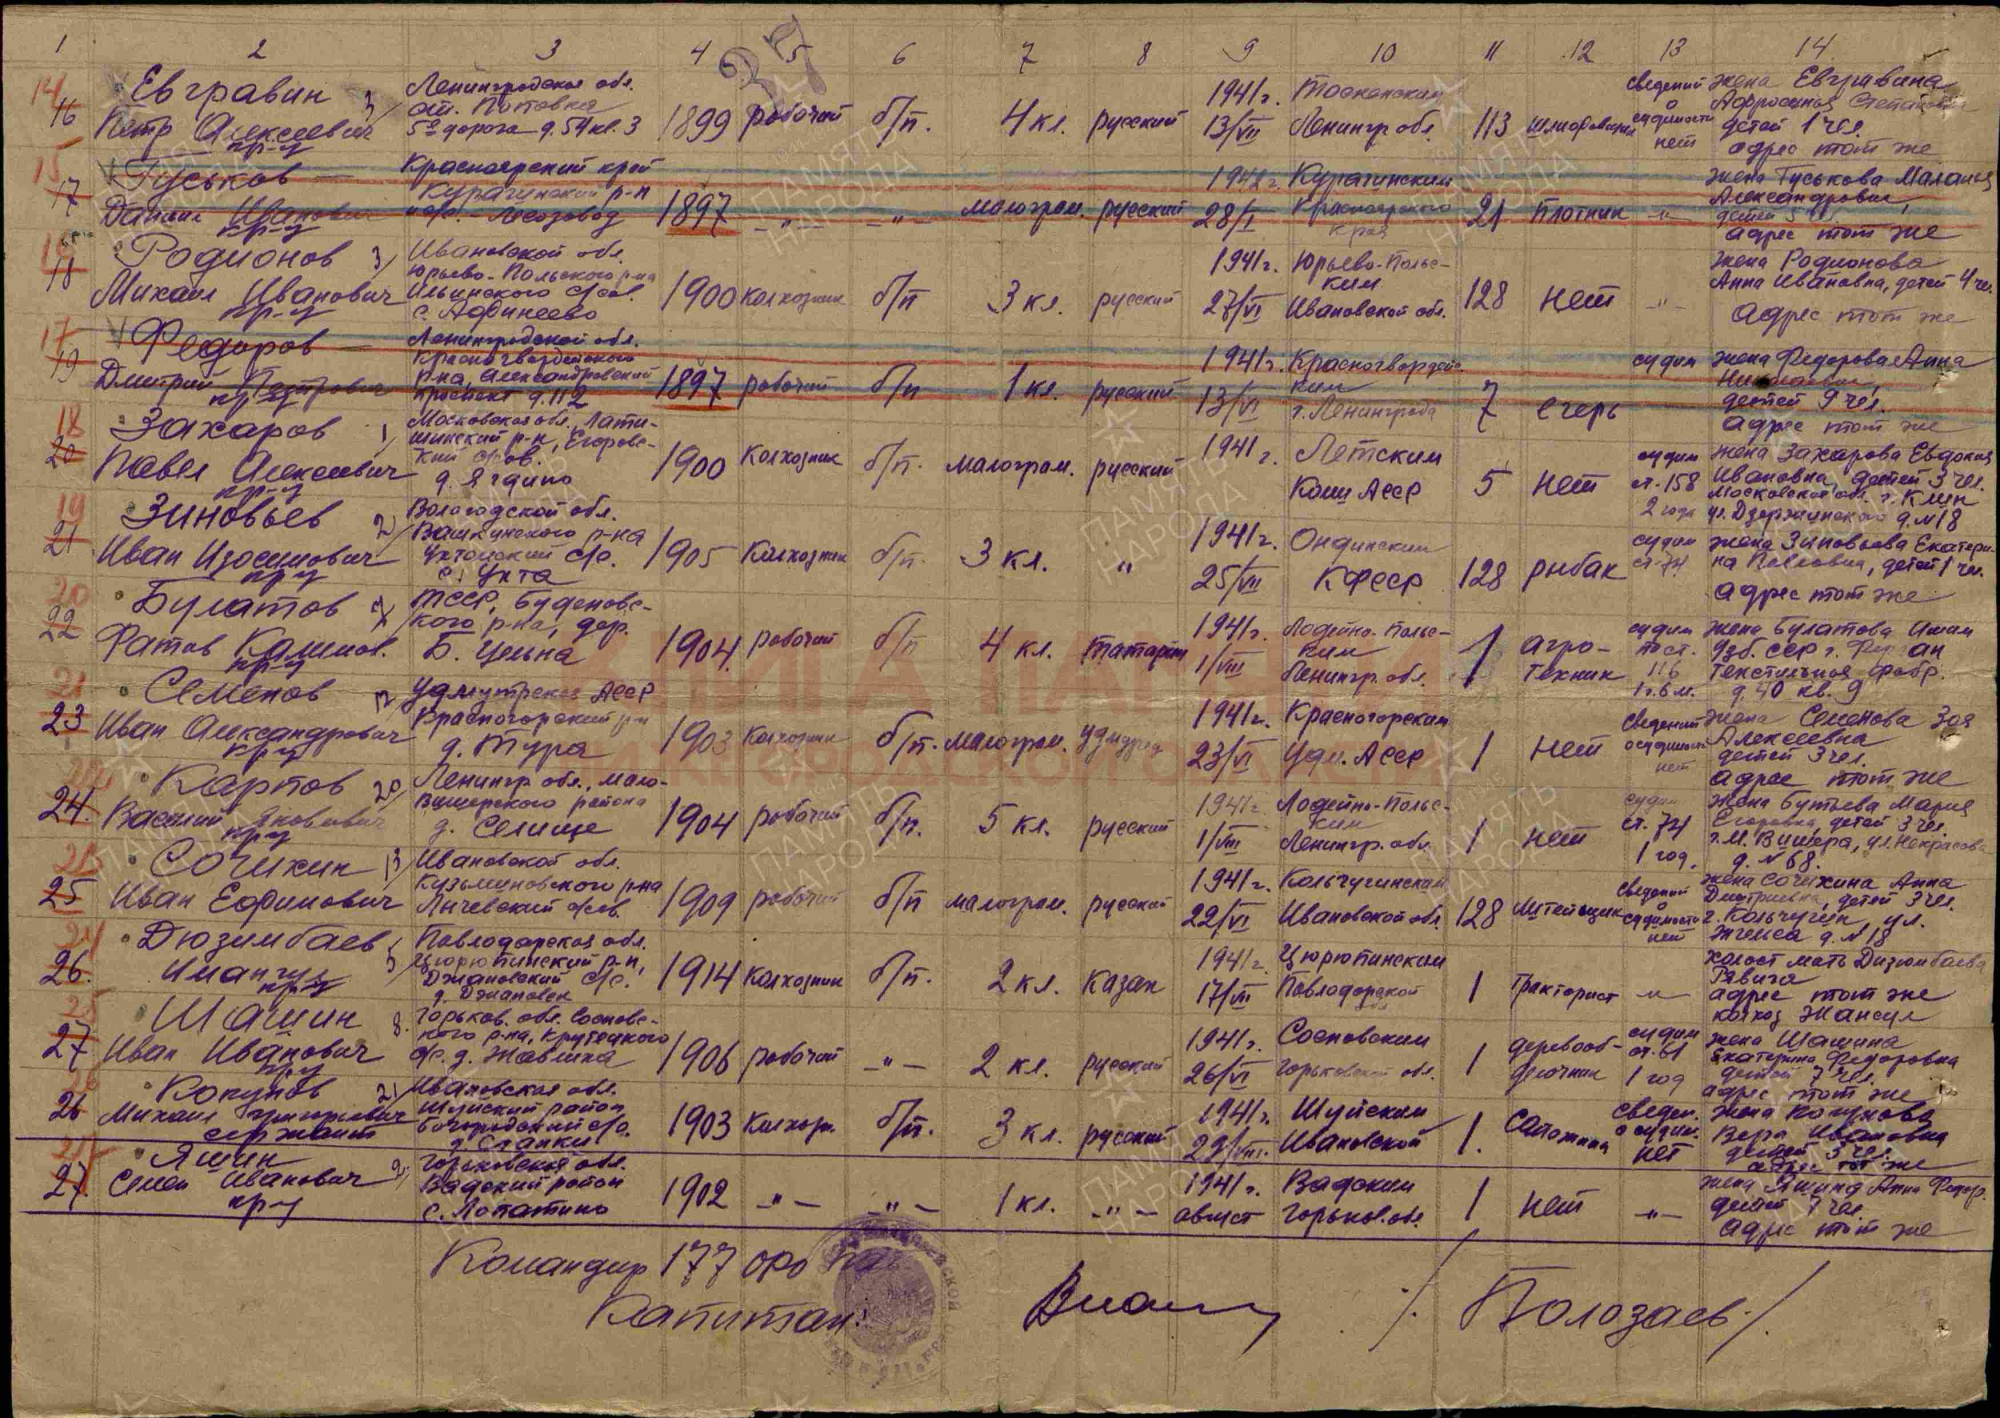 1 2 3 4 5 6 7 8 9 10 11 12 13 14
37
14
16
Евгравин 3/
Петр Алексеевич
кр-ц
Ленинградская обл.
ст. Поповка
5ая дорога д. 54 кв. 3
1899 рабочий б/п. 4 кл. русский
1941 г.
13/VII
Тосненским
Ленингр. обл.
113 шлифовщик
сведений
о
судимости
нет
жена Евгравина
Афросинья Степановна
детей 1 чел.
адрес тот же
15
17
Гуськов
Данил Иванович
кр-ц
Красноярский край
Курагинский р-н
1897 -"- -"- малограм. русский
28/I
Курагинским
Красноярского
края
21 плотник -"-
жена Гуськова Маланья
Александровна,
детей 5
адрес тот же
16
18
Родионов 3/
Михаил Иванович
кр-ц
Ивановской обл.
Юрьево-Польского р-на
Ильинского с/сов.
с. Афинеево
1900 колхозник б/п 3 кл. русский
1941 г.
27/VI
Юрьево-Поль-
ким
Ивановской обл.
128 нет -"-
жена Родионова
Анна Ивановна, детей 4 чел.
адрес тот же
17
19
Федоров
Дмитрий Петрович
кр-ц
Ленинградской обл.
Красногвардейского
р-на, Александровский
проспект д. 112
1897 рабочий б/п 1 кл. русский
1941 г.
13/VI
Красногвардейс
ким
г. Ленинграда
7 егерь
судим
жена Федорова Анна
Николаевна,
детей 9 чел.
адрес тот же
18
20
Захаров 1/
Павел Алексеевич
кр-ц
Московская обл., Лати-
шинский р-н, Егоровс-
кий с/сов.
д. Ягдино
1900 колхозник б/п. малограм. русский
1941 г.
Летским
Коми АССР
5 нет
судим
ст. 158
2 года
жена Захарова Евдокия
Ивановна, детей 3 чел.
Московская обл. г. Клин
ул. Дзержинского д. №18
19
21
Зиновьев 2/
Иван Изосимович
кр-ц
Вологодской обл.
Вашкинского р-на
Ухтомский с/с.
с. Ухта
1905 колхозник б/п. 3 кл. "
1941 г.
25/VII
Ондинским
КФССР
128 рыбак
судим
ст. 74
жена Зиновьева Екатери-
на Павловна, детей 1 чел.
адрес тот же
20
22
Булатов
Фатов
кр-ц
ТССР, Буденовс-
кого р-на, дер.
Б. Цельна
1904. рабочий б/п 4 кл. татарин
1941 г.
1/VIII
Лодейно-Поль-
ким
Ленингр. обл.
1 агро-
техник
судим
пост.
116
1 г. 6 м.
жена Булатова
Узб. ССР г.
Текстильная фабр.
д. 40 кв. 9
21
23
Семенов
Иван Александрович
кр-ц
Удмуртская АССР
Красногорский р-н
д. Тура
1903 колхозник б/п. малограм.
1941 г.
23/VI
Красногорским
Удм. АССР
1 нет
сведений
о судимости
нет
жена Семенова Зоя
Алексеевна
детей 3 чел.
адрес тот же
24.
Карпов 20/
Василий Яковлевич
кр-ц
Ленингр. обл., Мало-
Вишерского района
д. Селище
1904 рабочий б/п. 5 кл. русский
1941 г.
1/VIII
Лодейно-Поль-
ким
Ленингр. обл.
1 нет
судим
ст. 74
1 год.
жена Бутьева Мария
Егоровна, детей 3 чел.
г. М. Вишера, ул. Некрасова
д. №68.
25
Сочихин 13/
Иван Ефимович
Ивановской обл.
Кузьминовского р-на
Лычевский с/сов.
1909 рабочий б/п малограм. русский
1941 г.
22/VI
Кольчугинским
Ивановской обл.
128 литейщик
сведений
о
судимости
нет
жена Сочихина Анна
Дмитриевна, детей 3 чел.
г. Кольчугин, ул.
д. №18
24
26.
Дюзимбаев 5/
Имангул
кр-ц
Павлодарская обл.
Цюрюпинский р-н,
Джановский с/с.
д. Джановек
1914 колхозник б/п. 2 кл. казах
1941 г.
17/VII
Цюрюпинским
Павлодарской
обл
1 тракторист -"-
холост мать Дизюмбаева
адрес тот же
колхоз Жансул
25
27
Шашин 8.
Иван Иванович
кр-ц
Горьков. обл. Сосновс-
кого р-на, Крутецкого
с/с. д. Жавлика
1906 рабочий -"- 2 кл. русский
1941 г.
26/VI
Сосновским
Горьковской обл.
1 деревооб-
делочник
судим
ст. 61
1 год
жена Шашина
Екатерина Федоровна
детей 7 чел.
адрес тот же
26
Кокунов 2/
Михаил Григорьевич
сержант
Ивановская обл.
Шуйский район
Богородский с/с.
д. Станки
1903 колхозн. б/п. 3 кл. русский
1941 г.
29/VIII.
Шуйским
Ивановской
1.
сведен.
о судим.
нет
жена Кокунова
Вера Ивановна
детей 3 чел.
адрес тот же
27.
Яшин 2/
Семен Иванович
кр-ц
Горьковской обл.
Вадский район
с. Лопатино
1902 -"- -"- 1 кл. -"-
1941 г.
август
Вадским
Горьков. обл.
1 нет -"-
жена Яшина Анна Федор.
детей 7 чел.
адрес тот же
Командир 177
Капитан:
/Полозаев./
ПАМЯТЬ
НАРОДА
КНИГА ПАМЯТИ
НИЖЕГОРОДСКОЙ ОБЛАСТИ